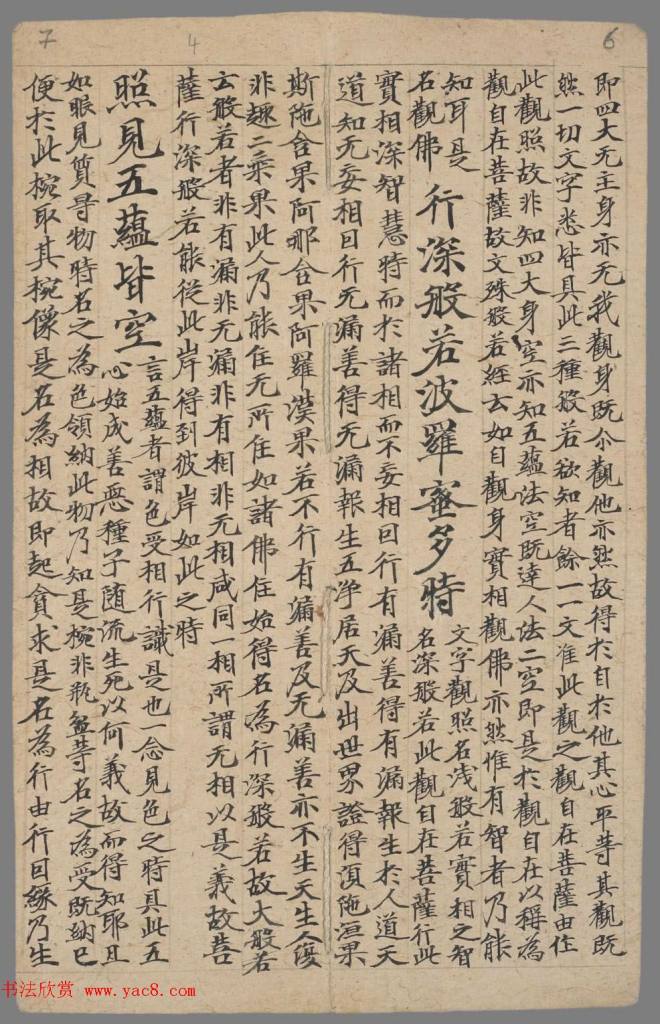 7
4
6
即四大无主身亦无我觀身既尒觀他亦然故得於自於他其心平等其觀既
然一切文字悉皆具此三種般若欲知者餘一一文准此觀之觀自在菩薩由住
此觀照故非知四大身空亦知五蘊法空既達人法二空即是於觀自在以稱為
觀自在菩薩故文殊般若經云如自觀身實相觀佛亦然惟有智者乃能
知耳是
名觀佛
行深般若波羅蜜多時
文字觀照名浅般若實相之智
名深般若此觀自在菩薩行此
實相深智慧時而於諸相而不妄相回行有漏善得有漏報生於人道天
道知无妄相回行无漏善得无漏報生五淨居天及出世界證得湏陁洹果
斯陁含果阿那含果阿羅漢果若不行有漏善及无漏善亦不生天生人復
非趣二乘果此人乃能住无所住如諸佛住始得名為行深般若故大般若
云般若者非有漏非无漏非有相非无相咸同一相所謂无相以是義故菩
薩行深般若能從此岸得到彼岸如此之時
照見五蘊皆空
言五蘊者謂色受相行識是也一念見色之時具此五
心始成善惡種子随流生死以何義故而得知耶且
如眼見質导物時名之為色領納此物乃知是椀非瓶盔等名之為受既納巳
便於此椀取其椀像是名為相故即起貪求是名為行由行回緣乃生
书法欣赏 www.yac8.com